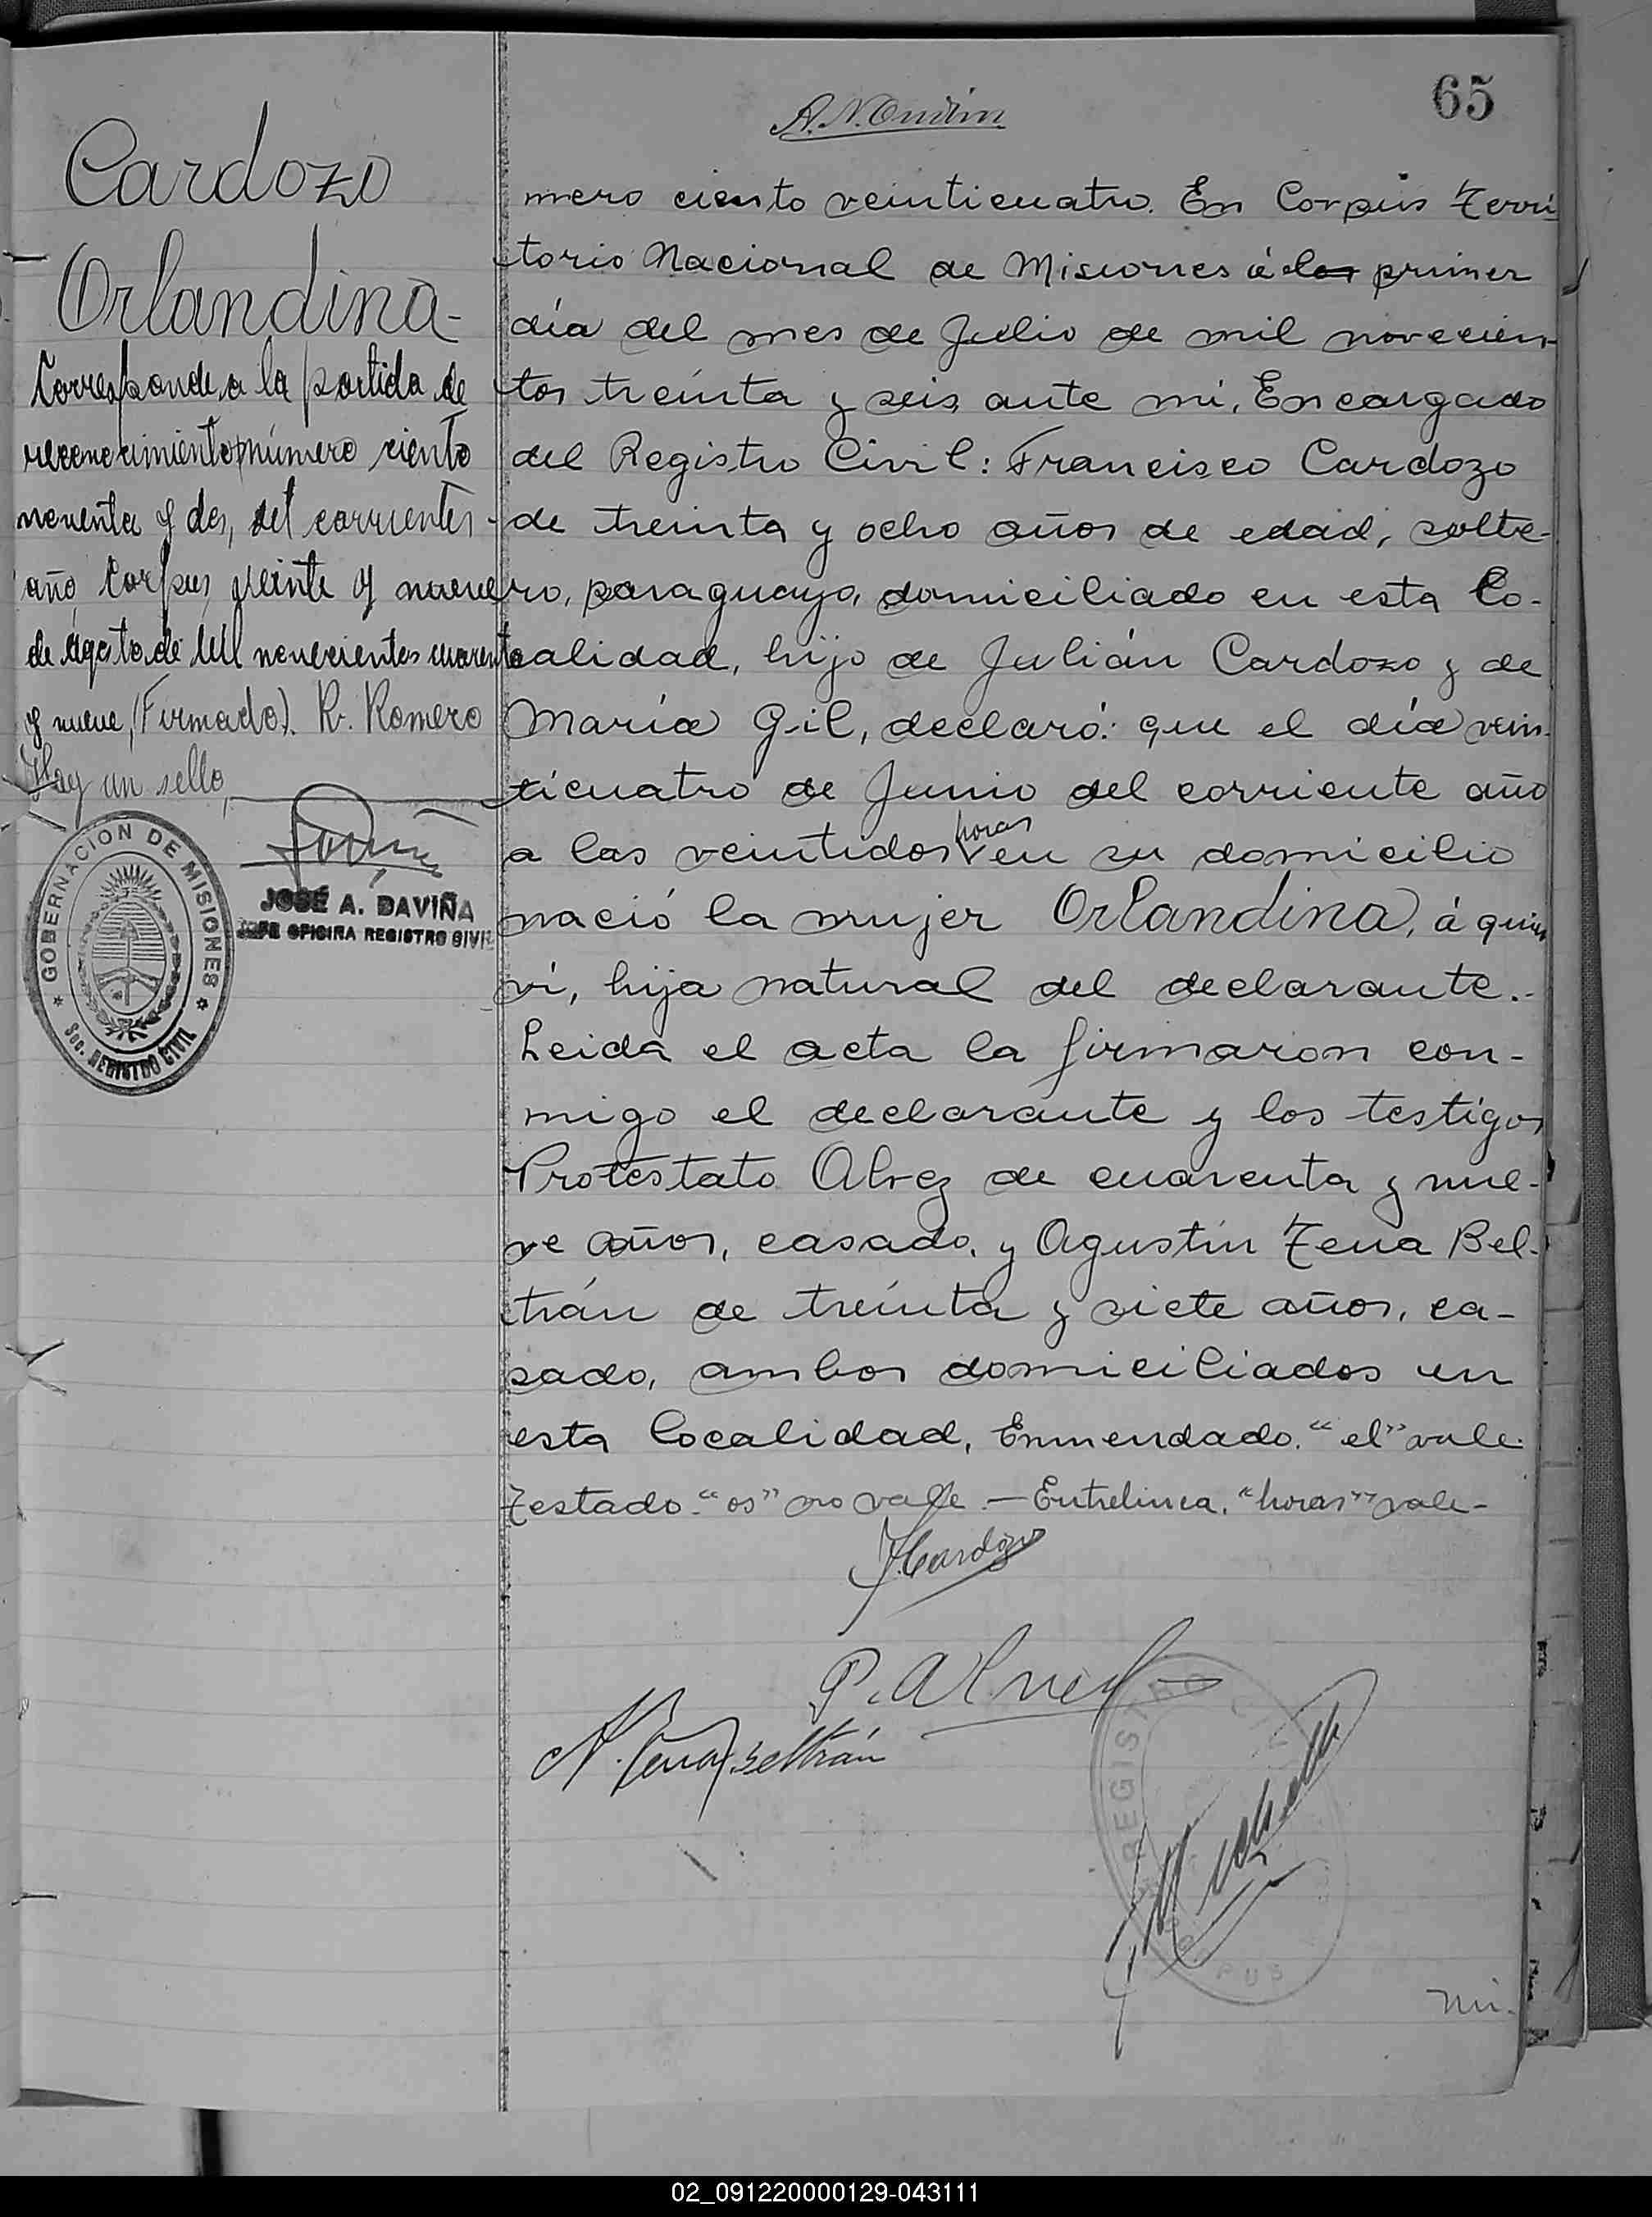 65
Cardozo
Orlandina-
Corresponde a la partida de
reconocimiento número ciento
noventa y dos, del corriente
año, Corpus, veinte y nueve
de Agosto de Mil novecientos cuarenta
y nueve, (Firmado). R. Romero
Hay un sello,
GOBERNACION DE MISIONES
Sec. REGISTRO CIVIL
JOSÉ A. DAVIÑA
JEFE OFICINA REGISTRO CIVIL
mero ciento veinticuatro. En Corpus Terri
torio Nacional de Misiones á el os primer
día del mes de Julio de mil novecien-
tos treinta y seis, ante mi, Encargado
del Registro Civil: Francisco Cardozo
de treinta y ocho años de edad, solte-
ro, paraguayo, domiciliado en esta Lo-
calidad, hijo de Julián Cardozo y de
María Gil, declaró: que el día vein-
ticuatro de Junio del corriente año
a las veintidos horas en su domicilio
nació la mujer Orlandina, á quien
vi, hija natural del declarante.-
Leida el acta la firmaron con-
migo el declarante y los testigos
Protestato Alvez de cuarenta y nue-
ve años, casado, y Agustín Tena Bel-
trán de treinta y siete años, ca-
sado, ambos domiciliados en
esta localidad, Enmendado. "el" vale.
Testado. "os" no vale.— Entrelinea. "horas" vale-
F. Cardozo
P. Alvez
A. Tena Beltrán
REGISTRO CIVIL
CORPUS
02_091220000129-043111